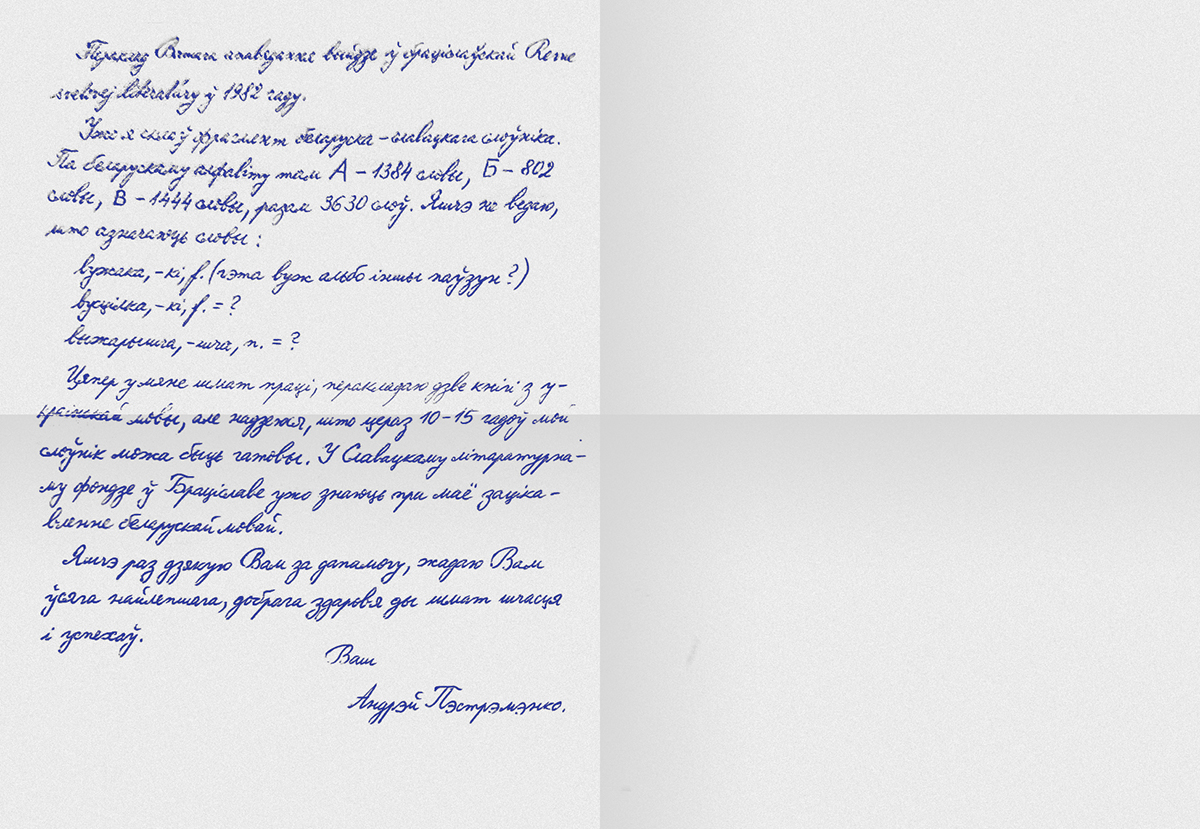 Пераклад Вашага апавядання выйдзе ў браціслаўскай Revue
svetovej literatúry ў 1982 гаду.
Ужо я склаў фрагмент беларуска-славацкага слоўніка.
Па беларускаму алфавіту там А – 1384 словы, Б – 802
словы, В – 1444 словы, разам 3630 слоў. Яшчэ не ведаю,
што азначаюць словы:
вужака, -кі, f. (гэта вуж альбо іншы паўзун?)
вусцілка, -кі, f. = ?
выжарышча, -шча, n. = ?
Цяпер у мяне шмат працы, перакладаю дзве кнігі з у-
краінскай мовы, але надзеюся, што цераз 10–15 гадоў мой
слоўнік можа быць гатовы. У Славацкаму літаратурна-
му фондзе ў Браціславе ужо знаюць при маё заціка-
вленне беларускай мовай.
Яшчэ раз дзякую Вам за дапамогу, жадаю Вам
ўсяга найлепшага, добрага здароўя ды шмат шчасця
і успехаў.
Ваш
Андрэй Пэстрэмэнко.